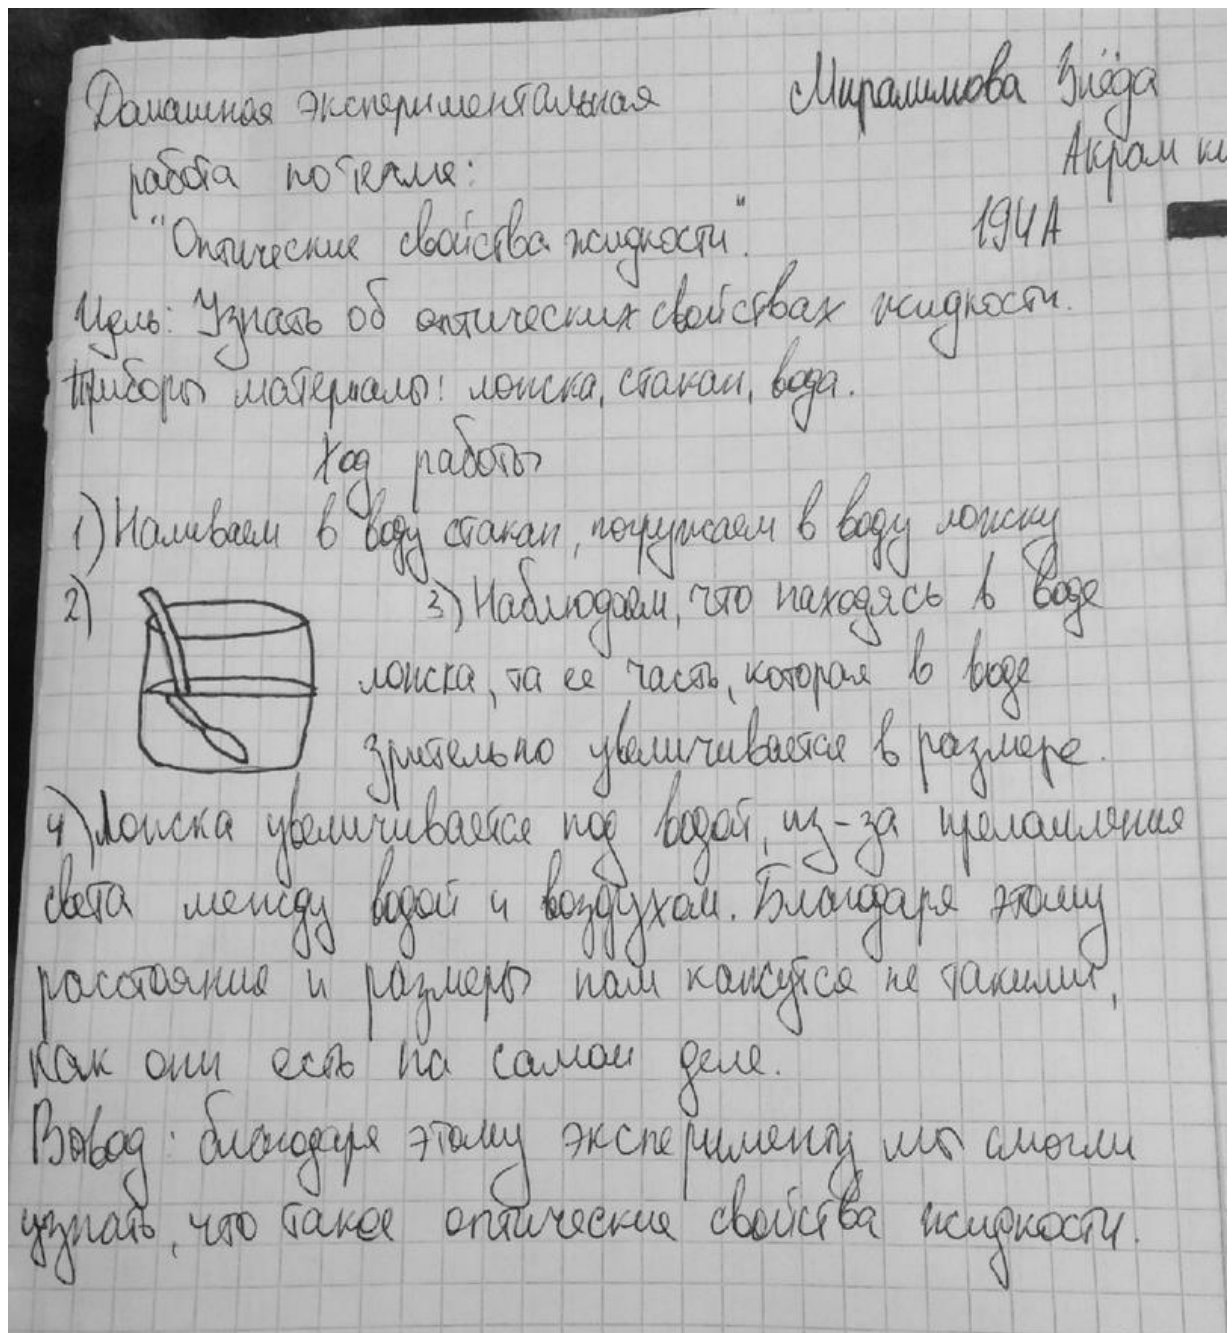 Домашная экспериментальная
работа по теме:
"Оптические свойства жидкости".
Миралимова Зиёда
Акрам
194А
Цель: Узнать об оптических свойствах жидкости.
Приборы материалы: ложка, стакан, вода.
Ход работы
1) Наливаем в воду стакан, погружаем в воду ложку
2)
3) Наблюдаем, что находясь в воде
ложка, та ее часть, которая в воде
зрительно увеличивается в размере.
4) Ложка увеличивается под водой, из-за преламления
света между водой и воздухом. Благодаря этому
расстояние и размеры нам кажутся не такими,
как они есть на самом деле.
Вывод: благодаря этому эксперименту мы смогли
узнать, что такое оптические свойства жидкости.